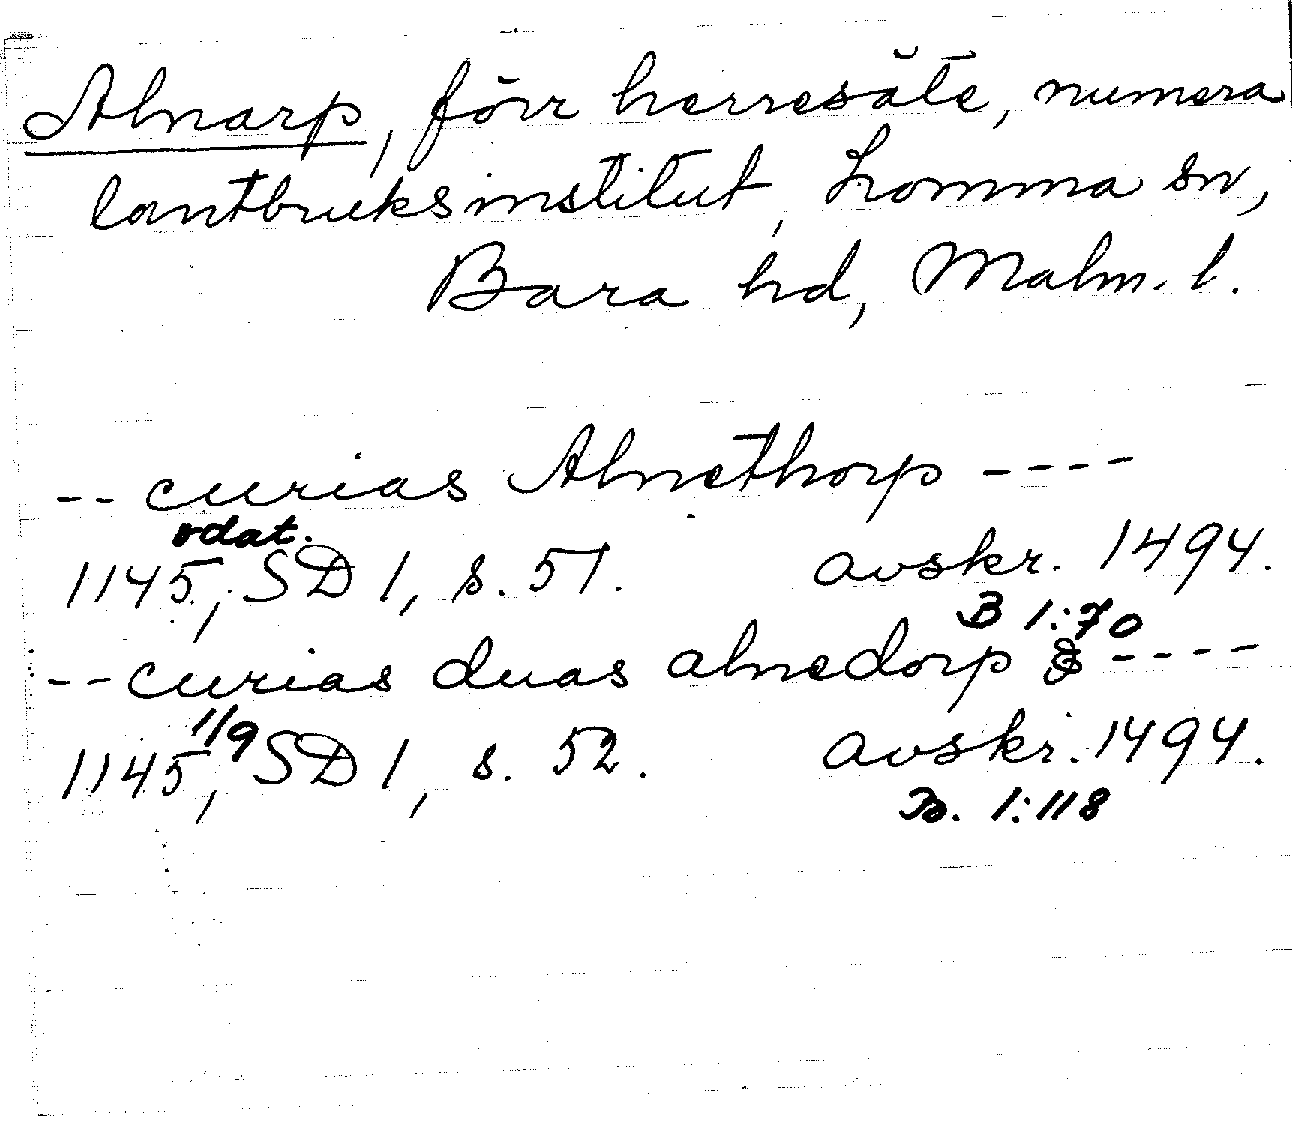 Alnarp, förr herresäte, numera
lantbruksinstitut, Lomma sn,
Bara hd, Malm. l.
-- curias Alnethorp ----
odat.
1145, SD 1, s. 51. avskr. 1494.
B 1:70
-- curias duas alnedorp & ----
1/9
1145, SD 1, s. 52. avskr. 1494.
B. 1:118